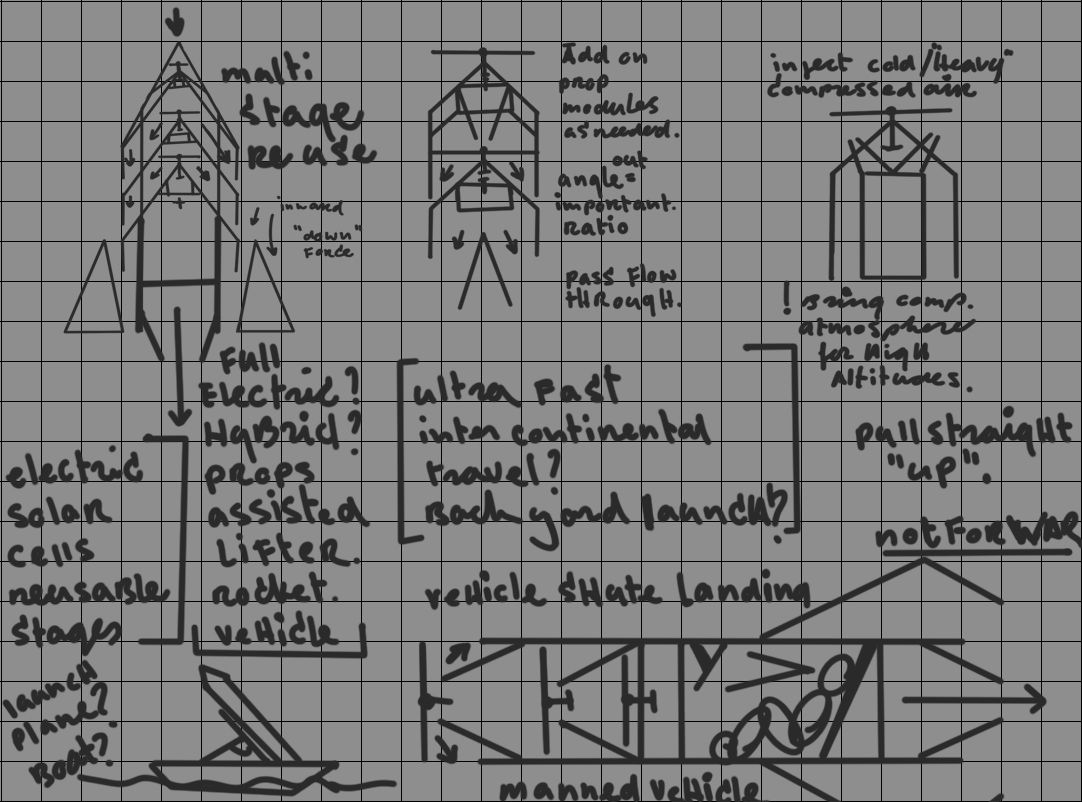 malti
stage
Re use
inward
"down"
Force
Add on
prop
modules
as needed.
out
angle=
important.
Ratio
pass Flow
tHRough.
inject cold/"Heavy"
compressed aire
! Bring comp.
atmosphere
for High
Altitudes.
Full
Electric?
HyBrid?
props
assisted
Lifter.
rocket.
vehicle
electric
solar
cells
reusable
stages
ultra Fast
inter continental
travel?
Back yard launch?
pull straight
"up".
not For WAR
vehicle skate Landing
launch
plane?
Boat?
manned vehicle